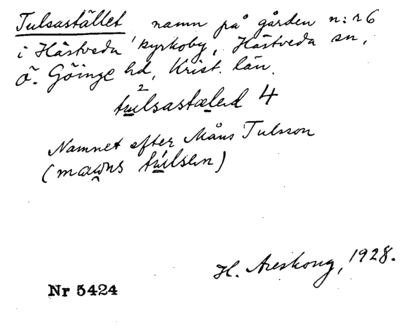 Tulsastället namn på gården n:r 6
i Hästveda kyrkoby, Hästveda sn,
Ö. Göinge hd, Krist. län.
Namnet efter Måns Tulsson
H. Areskoug, 1928.
Nr 5424